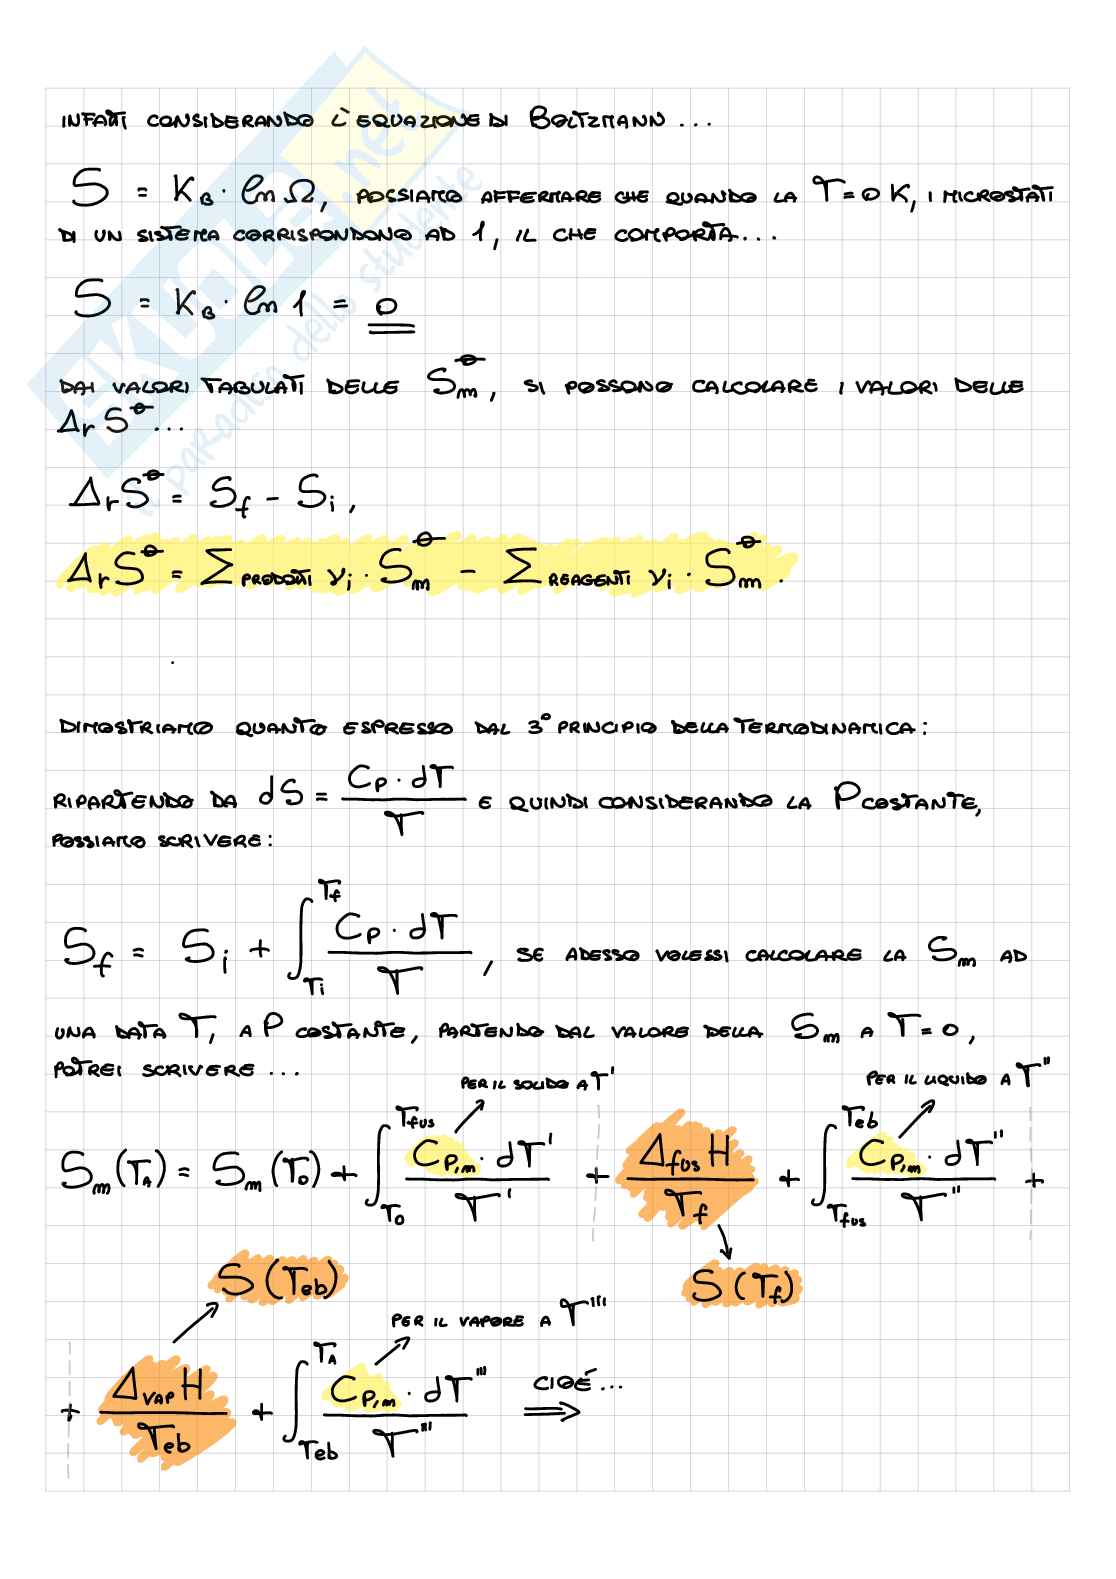 INFATTI CONSIDERANDO L'EQUAZIONE DI BOLTZMANN ...
S = K_B · ln Ω, POSSIAMO AFFERMARE CHE QUANDO LA T = 0 K, I MICROSTATI
DI UN SISTEMA CORRISPONDONO AD 1, IL CHE COMPORTA...
S = K_B · ln 1 = 0
DAI VALORI TABULATI DELLE S_m^⦵, SI POSSONO CALCOLARE I VALORI DELLE
Δ_r S^⦵ ...
Δ_r S^⦵ = S_f - S_i,
Δ_r S^⦵ = Σ PRODOTTI ν_i · S_m^⦵ - Σ REAGENTI ν_i · S_m^⦵.
DIMOSTRIAMO QUANTO ESPRESSO DAL 3° PRINCIPIO DELLA TERMODINAMICA:
RIPARTENDO DA dS = C_P · dT / T E QUINDI CONSIDERANDO LA P COSTANTE,
POSSIAMO SCRIVERE:
S_f = S_i + ∫_{T_i}^{T_f} C_P · dT / T, SE ADESSO VOLESSI CALCOLARE LA S_m AD
UNA DATA T, A P COSTANTE, PARTENDO DAL VALORE DELLA S_m A T = 0,
POTREI SCRIVERE ...
PER IL SOLIDO A T' PER IL LIQUIDO A T''
S_m(T_A) = S_m(T_0) + ∫_{T_0}^{T_fus} C_P,m · dT' / T' + Δ_fus H / T_f + ∫_{T_fus}^{T_eb} C_P,m · dT'' / T'' +
S(T_eb) S(T_f)
PER IL VAPORE A T'''
+ Δ_VAP H / T_eb + ∫_{T_eb}^{T_A} C_P,m · dT''' / T''' ⟹ CIOÉ...
SKUOLA.net
il paradiso dello studente